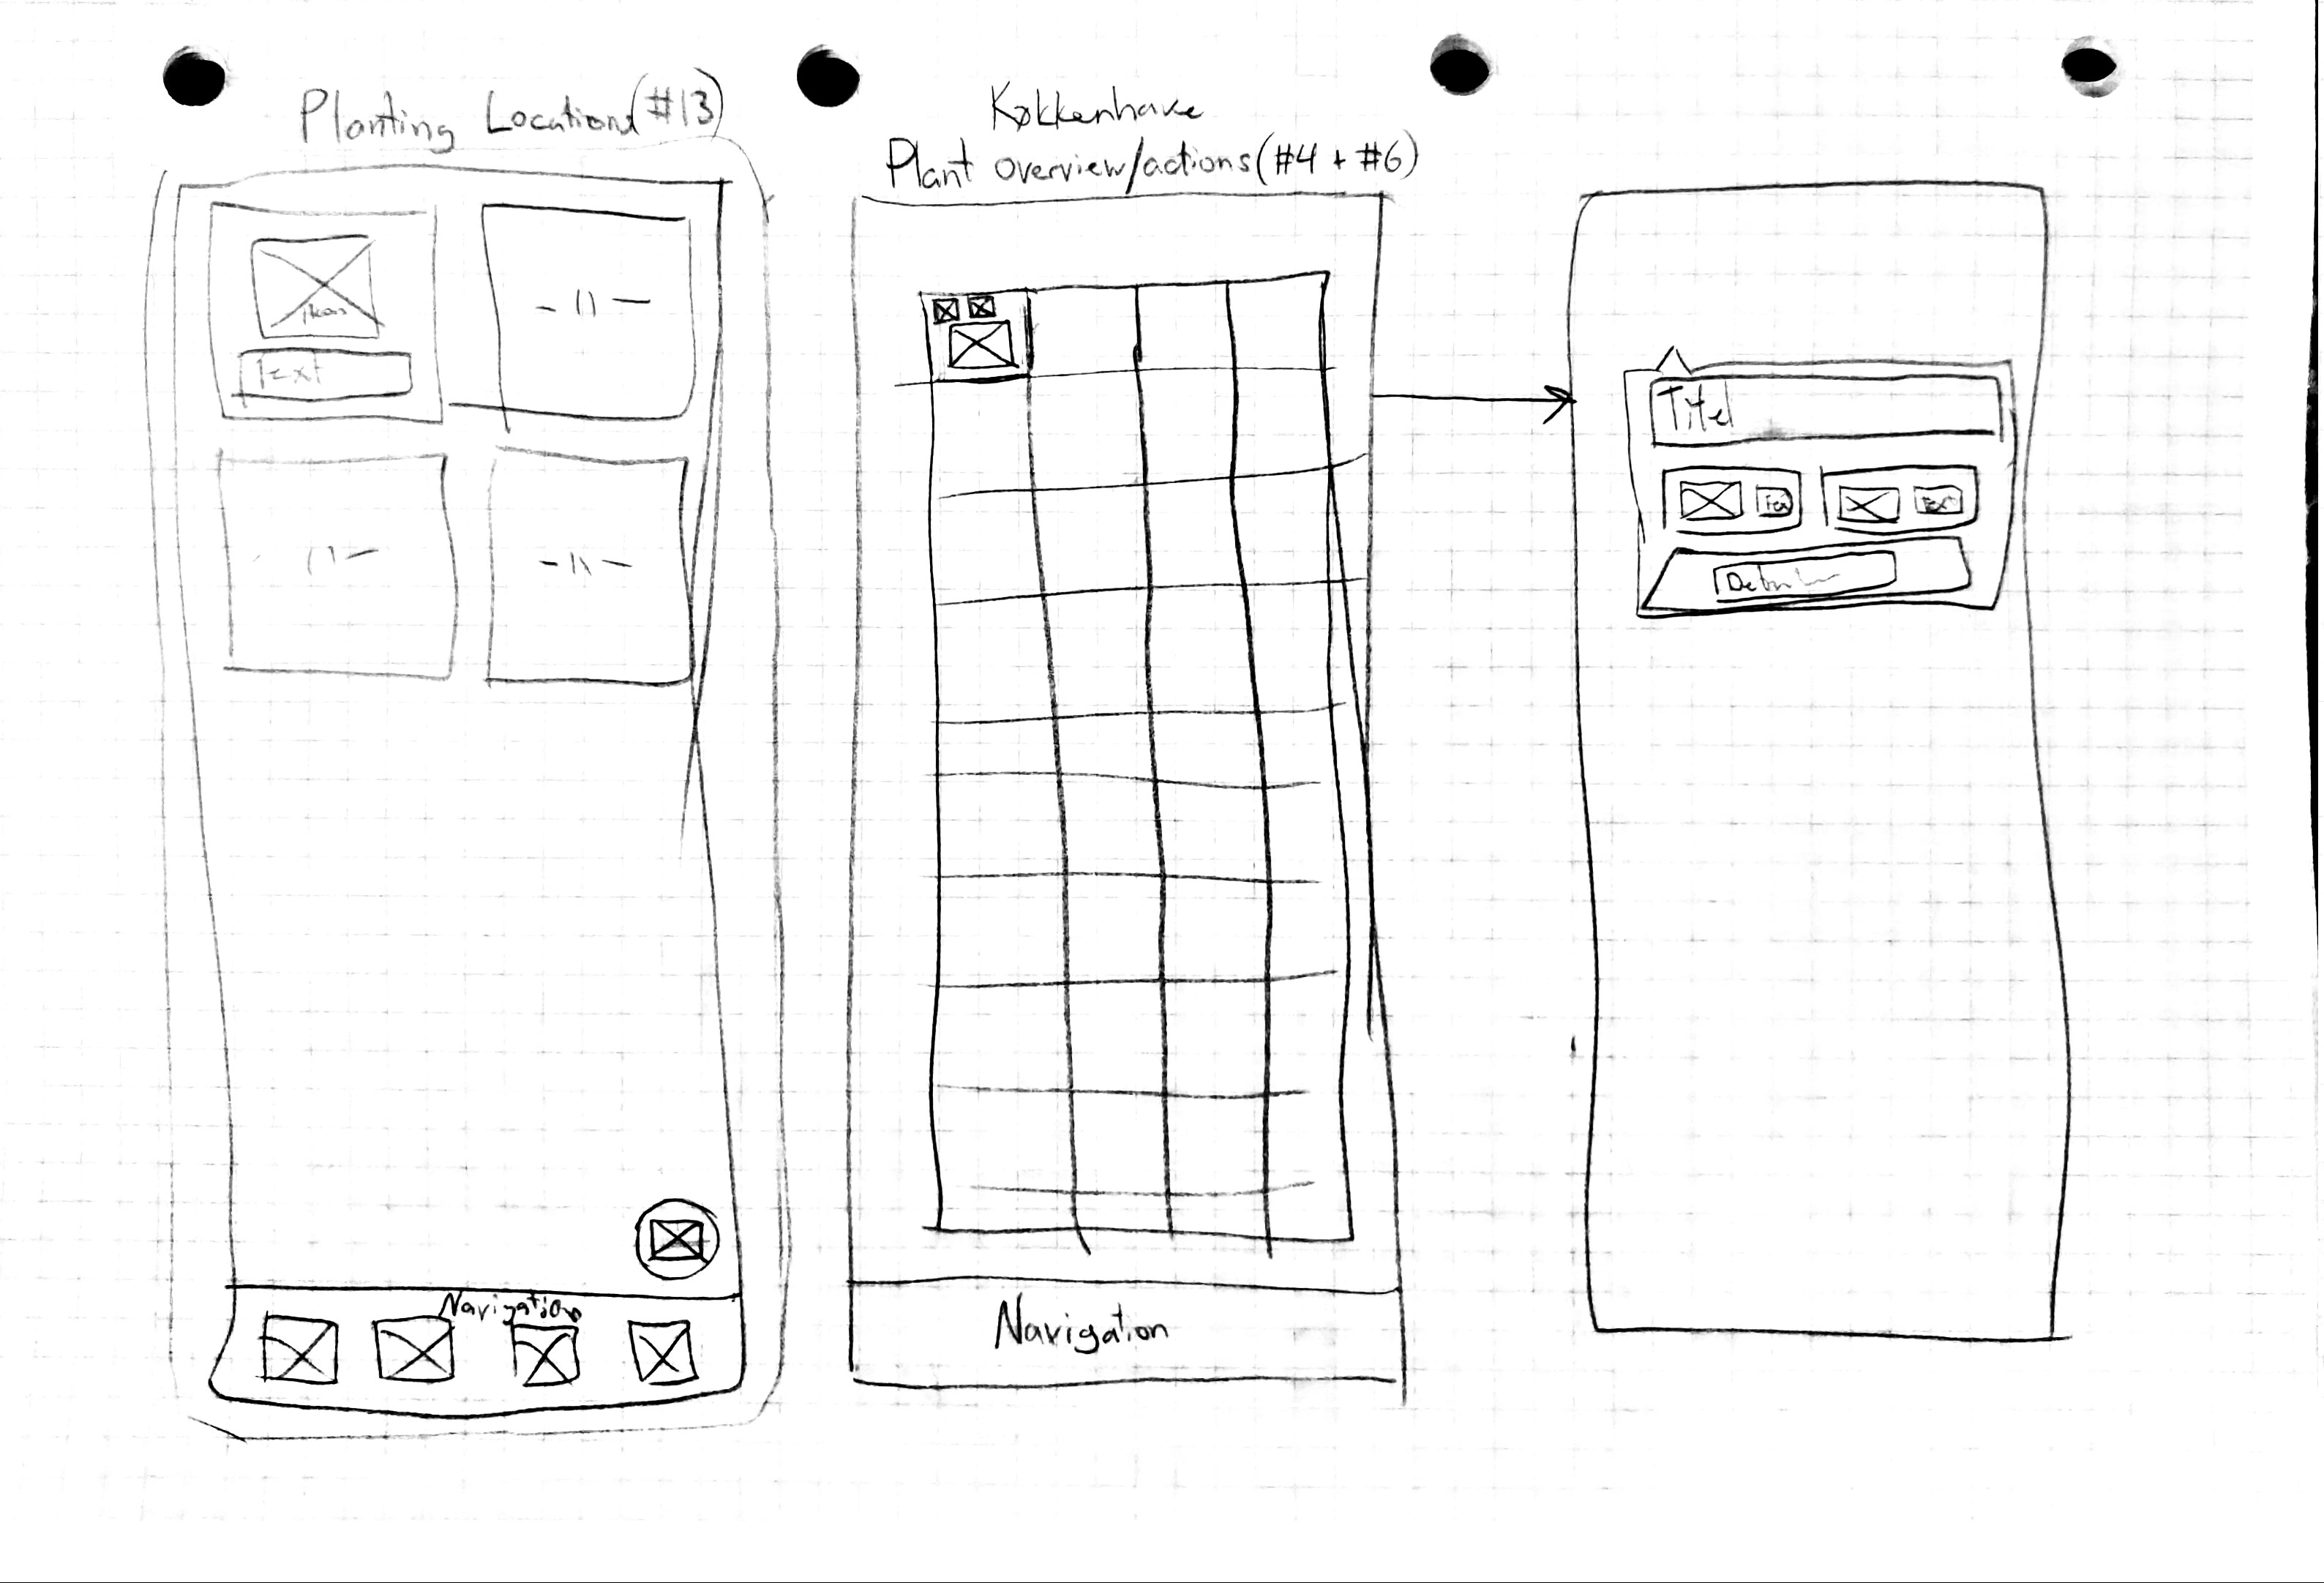 Planting Locations (#13)
Ikon
Text
- 11 -
- 11 -
- 11 -
Navigation
Køkkenhave
Plant overview/actions (#4 + #6)
Navigation
Titel
Text
Text